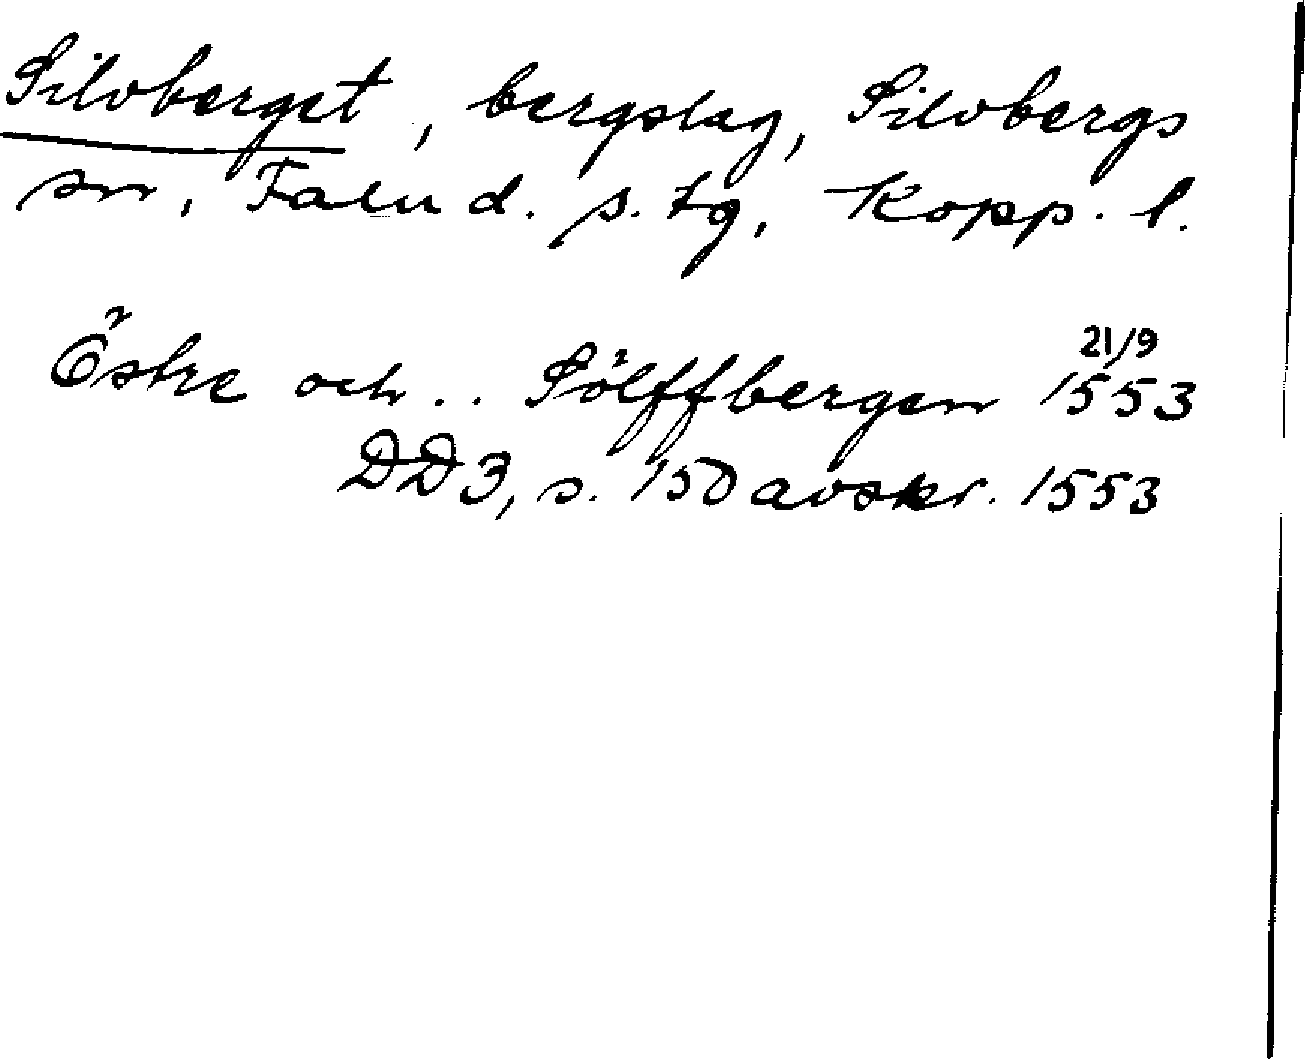 Silvberget, bergslag, Silvbergs
sn, Falu d. s. tg, Kopp. l.
Östre och .. Sölffbergen 21/9 1553
DD 3, s. 150 avskr. 1553